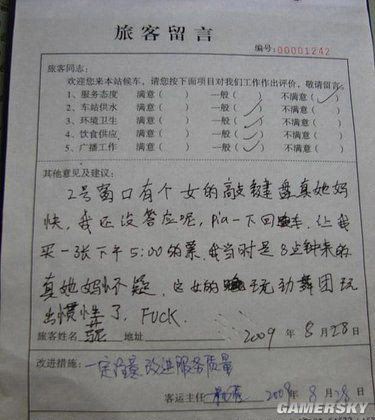 旅客留言
编号:00001242
旅客同志:
欢迎您来本站候车,请您按下面项目对我们工作作出评价,敬请留言。
1、服务态度 满意( ) 一般( ) 不满意(✓)
2、车站供水 满意( ) 一般(✓) 不满意( )
3、环境卫生 满意( ) 一般(✓) 不满意( )
4、饮食供应 满意( ) 一般(✓) 不满意( )
5、广播工作 满意( ) 一般(✓) 不满意( )
其他意见及建议:
2号窗口有个女的敲键盘真她妈
快,我还没答应呢,Pia一下回车,让我
买一张下午5:00的票,我当时是8点钟来的
真她妈怀疑,这女的 玩劲舞团玩
出惯性了,FUCK.
旅客姓名 地址 2009年8月28日
改进措施:一定注意改进服务质量
客运主任 2009年8月28日
GAMERSKY